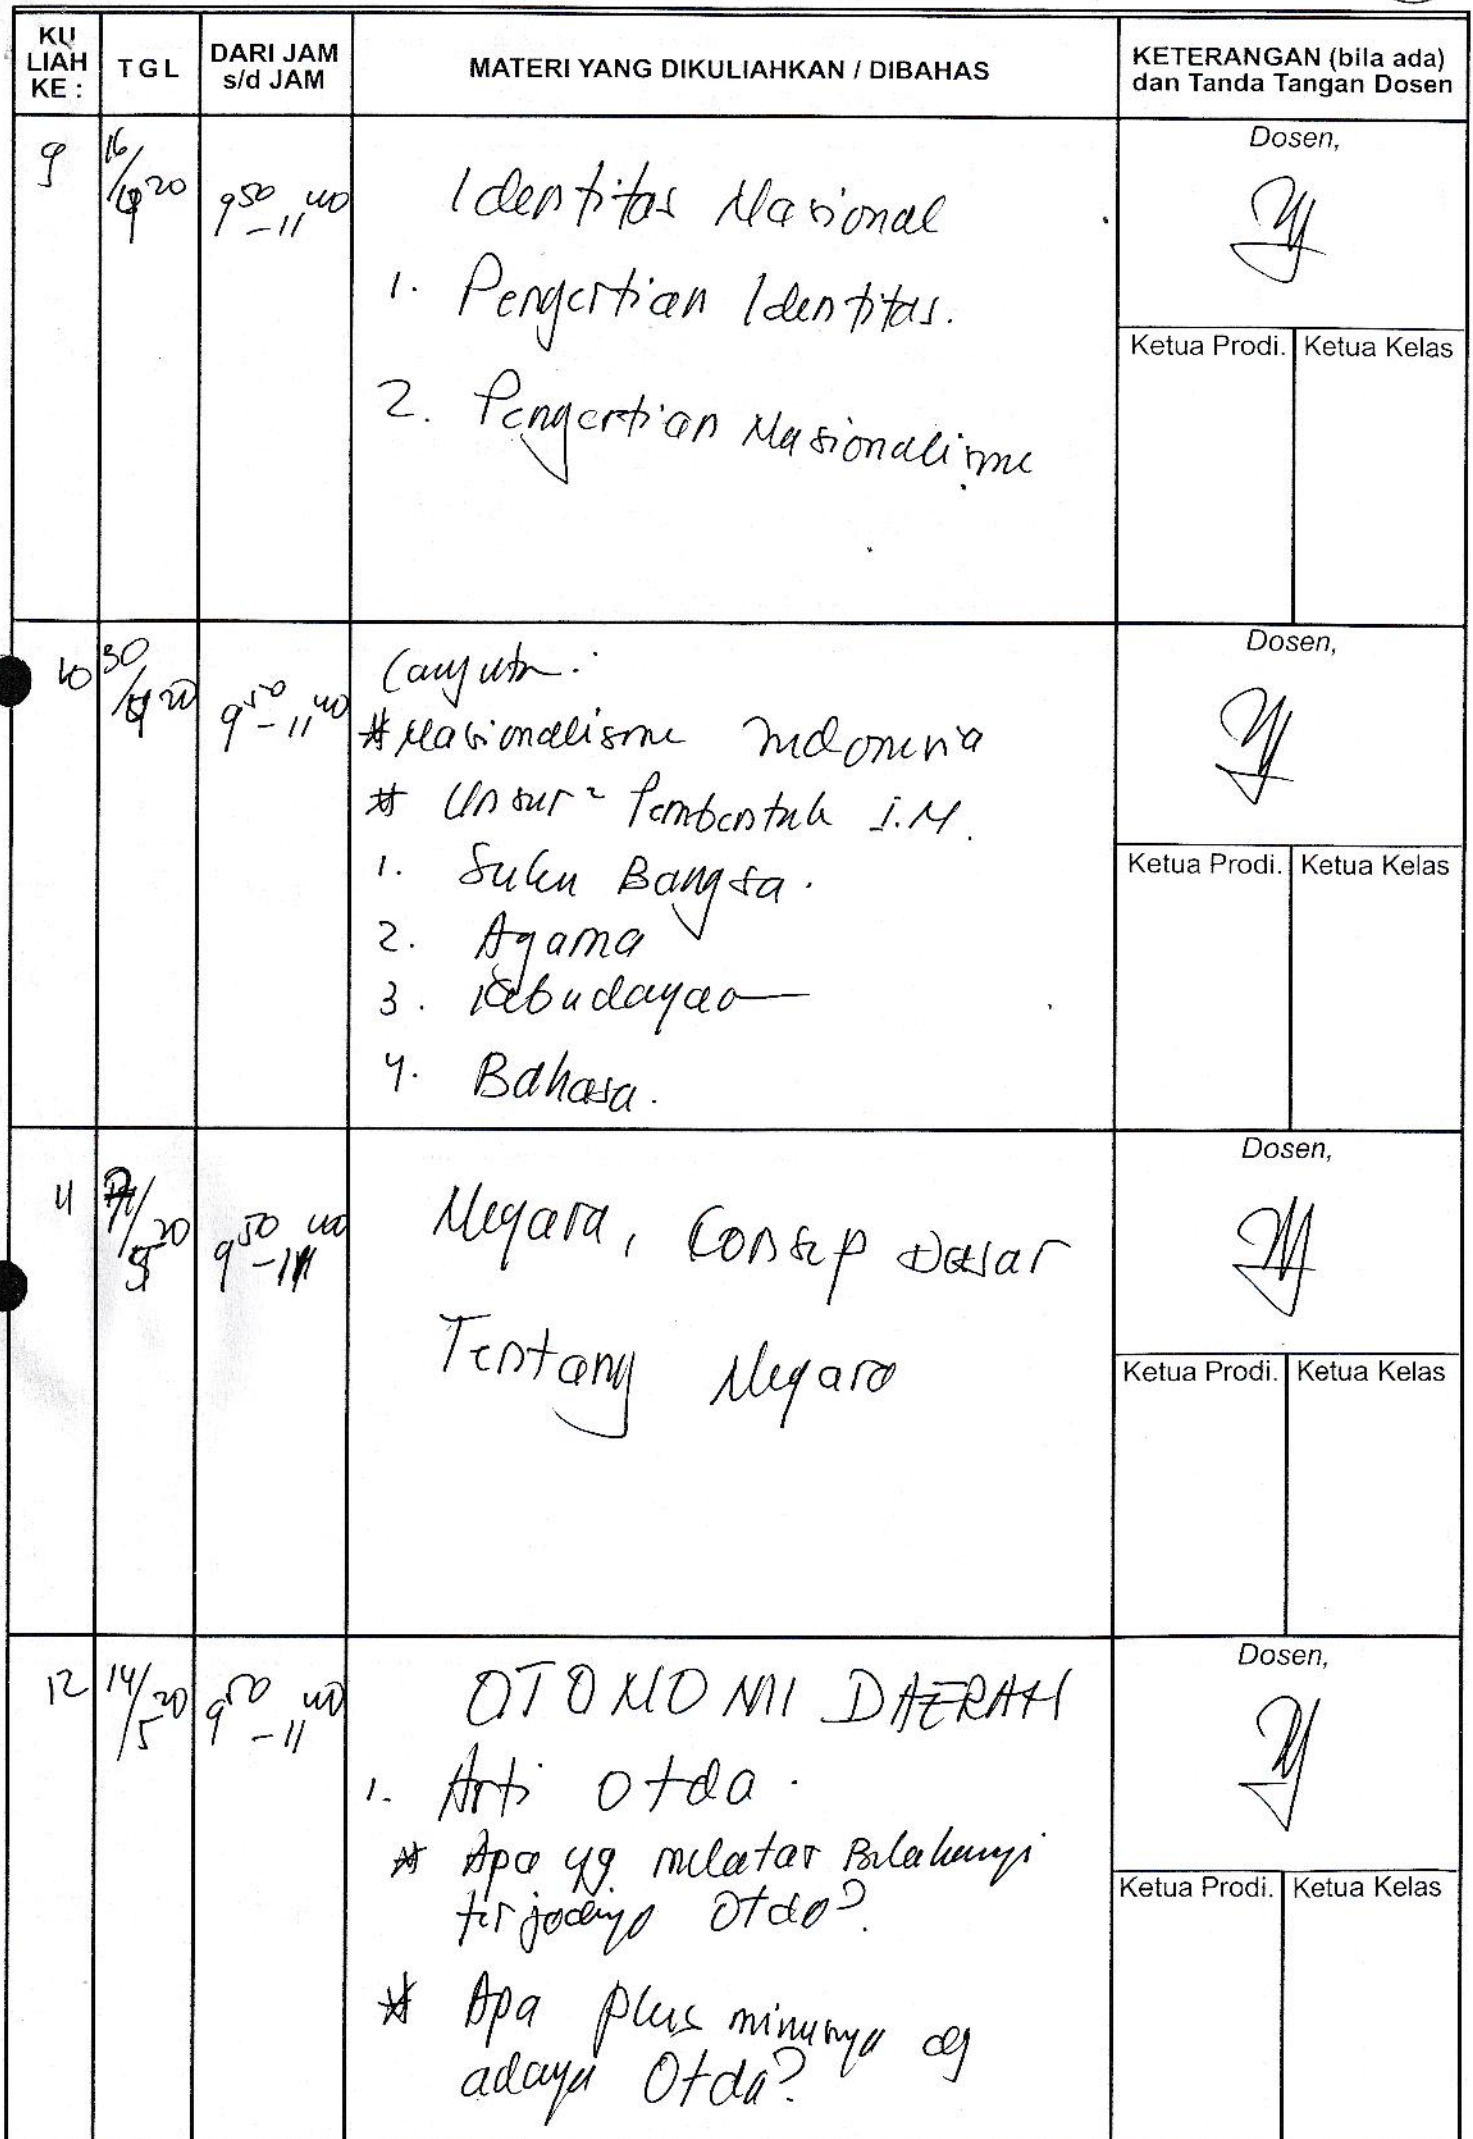 KU LIAH KE :
TGL
DARI JAM s/d JAM
MATERI YANG DIKULIAHKAN / DIBAHAS
KETERANGAN (bila ada) dan Tanda Tangan Dosen
9
16/4 20
9 50 - 11 40
Identitas Nasional
1. Pengertian Identitas.
2. Pengertian Nasionalisme
Dosen,
Ketua Prodi. Ketua Kelas
10
30/4 20
9 50 - 11 40
Lanjutan :
# Nasionalisme Indonesia
# Unsur² Pembentuk I.N.
1. Suku Bangsa.
2. Agama
3. Kebudayaan
4. Bahasa.
Dosen,
Ketua Prodi. Ketua Kelas
11
7/5 20
9 50 - 11 40
Negara, Consep Dasar
Tentang Negara
Dosen,
Ketua Prodi. Ketua Kelas
12
14/5 20
9 50 - 11 40
OTONOMI DAERAH
1. Arti Otda.
* Apa yg melatar Belakangi
terjadinya Otda?
* Apa plus minusnya dg
adaya Otda?
Dosen,
Ketua Prodi. Ketua Kelas